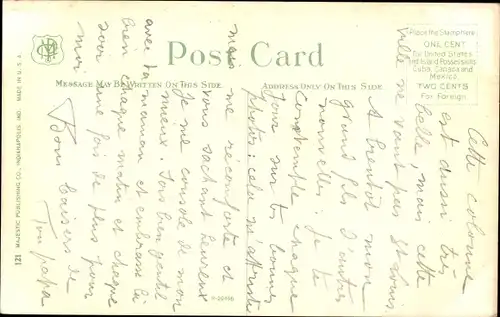 Post Card
MESSAGE MAY BE WRITTEN ON THIS SIDE
ADDRESS ONLY ON THIS SIDE
Place the Stamp here
ONE CENT
For United States
and Island Possessions
Cuba, Canada and
Mexico.
TWO CENTS
For Foreign.
121 MAJESTIC PUBLISHING CO., INDIANAPOLIS, IND. MADE IN U. S. A.
Cette colonne
est aussi très
belle, mais cette
ville ne vaut pas St Louis.
A bientôt mon
grand fils d'autres
nouvelles. Je te
contemple chaque
jour sur tes bonnes
photos: cela m'attriste
mais me réconforte et
vous sachant heureux
je me console de mon
mieux. Sois bien gentil
avec ta maman et embrasse la
bien chaque matin et chaque
soir une fois de plus pour
moi.
Bons baisers de
Ton papa